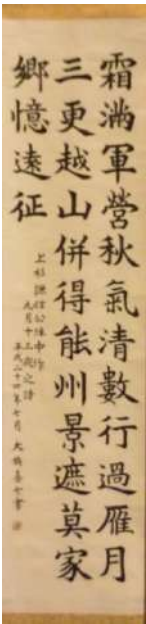 霜満軍營秋氣清數行過雁月
三更越山併得能州景遮莫家
郷憶遠征
上杉謙信公陣中作
九月十三夜之詩
平成二十四年七月 大橋喜七書